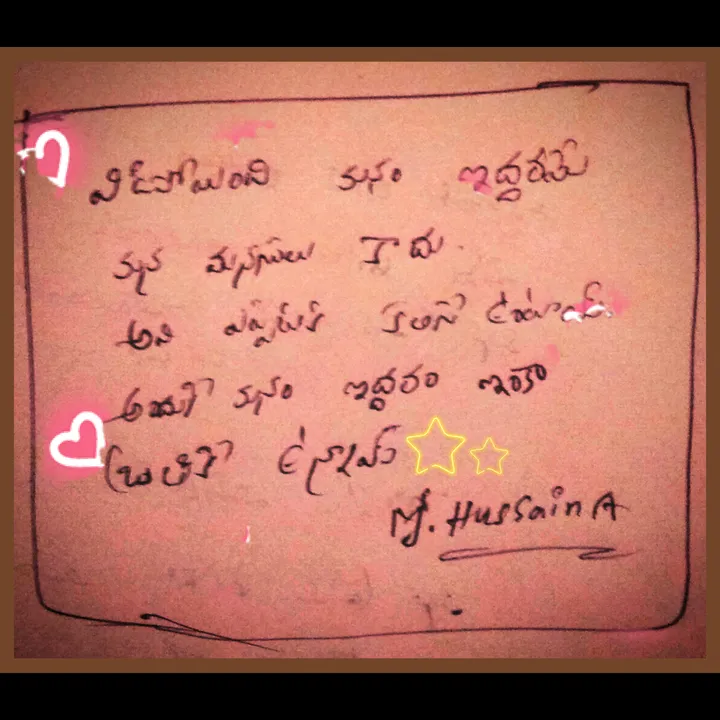 విడిపోయింది మనం ఇద్దరమే
మన మనసులు కాదు.
అవి ఎప్పటికీ కలిసే ఉంటాయ్.
అందుకే మనం ఇద్దరం ఇంకా
బ్రతికే ఉన్నామ్
Mf. Hussain A